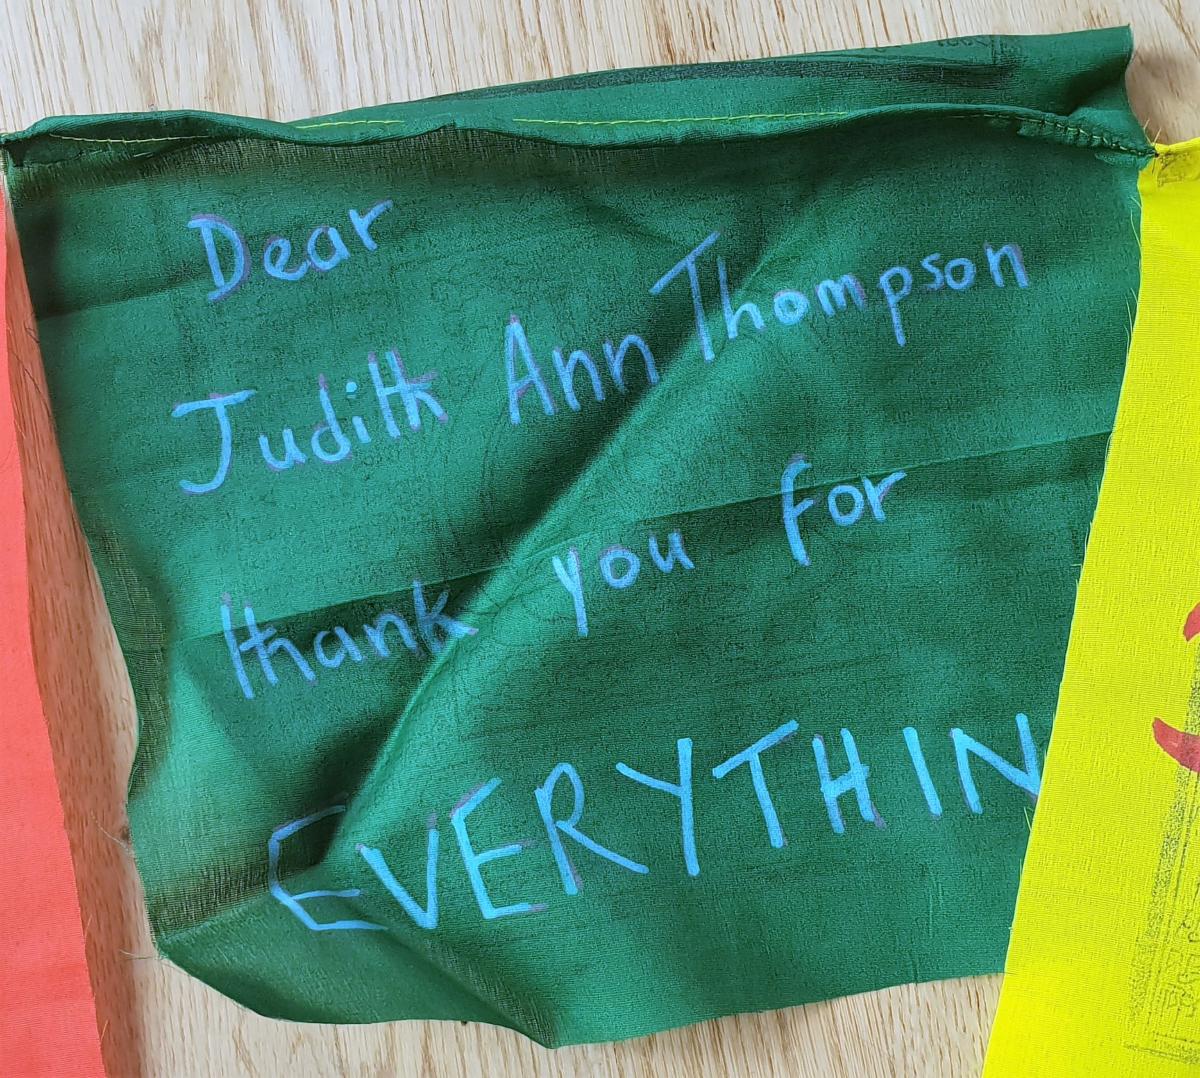 Dear
Judith Ann Thompson
thank you for
EVERYTHIN